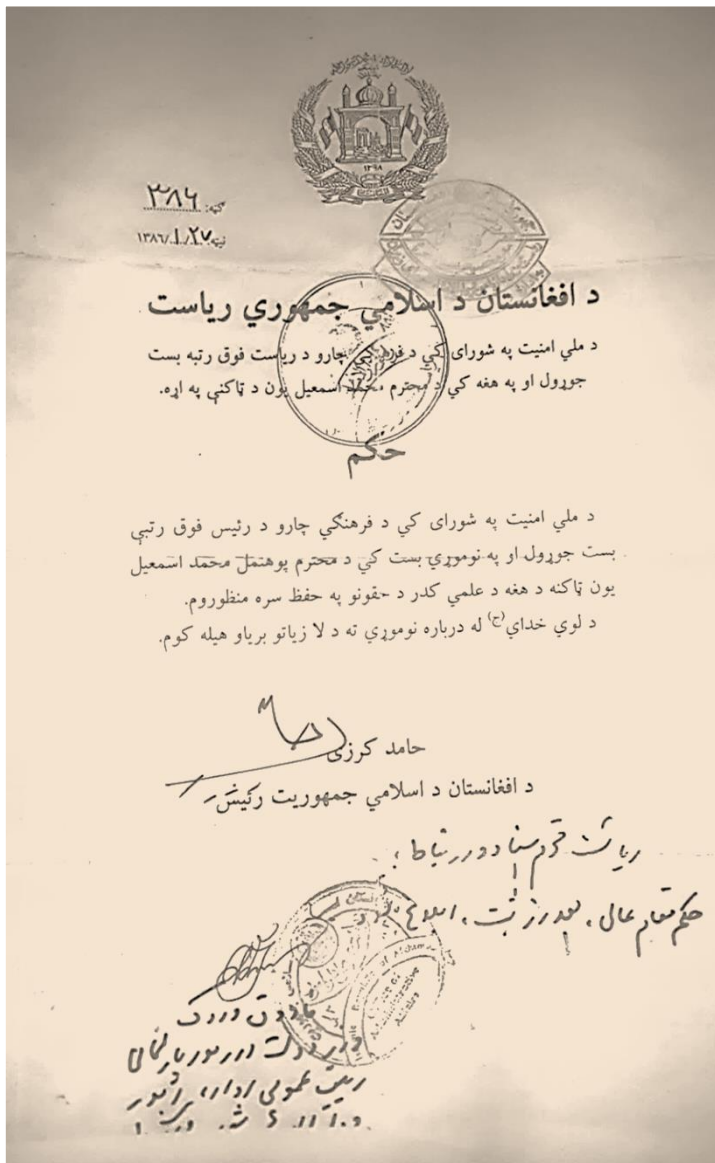 ۱۳۹۸
ګڼه: ۳۸۶
نېټه ۱۳۸۶/۱/۲۷
د افغانستان د اسلامي جمهوري ریاست
د ملي امنیت په شورای کي د فرهنګي چارو د ریاست فوق رتبه بست
جوړول او په هغه کي د محترم محمد اسمعیل یون د ټاکنې په اړه.
حکم
د ملي امنیت په شورای کي د فرهنګي چارو د رئیس فوق رتبې
بست جوړول او په نوموړي بست کي د محترم پوهنمل محمد اسمعیل
یون ټاکنه د هغه د علمي کدر د حقونو په حفظ سره منظوروم.
د لوي خدای(ج) له درباره نوموړي ته د لا زیاتو بریاو هیله کوم.
حامد کرزی
د افغانستان د اسلامي جمهوریت رئیس
ریاست اسناد و ارتباط:
حکم مقام عالی، بعد از ثبت،
فاروق وردک
وزیر دولت در امور پارلمانی
رئیس عمومی اداره امور